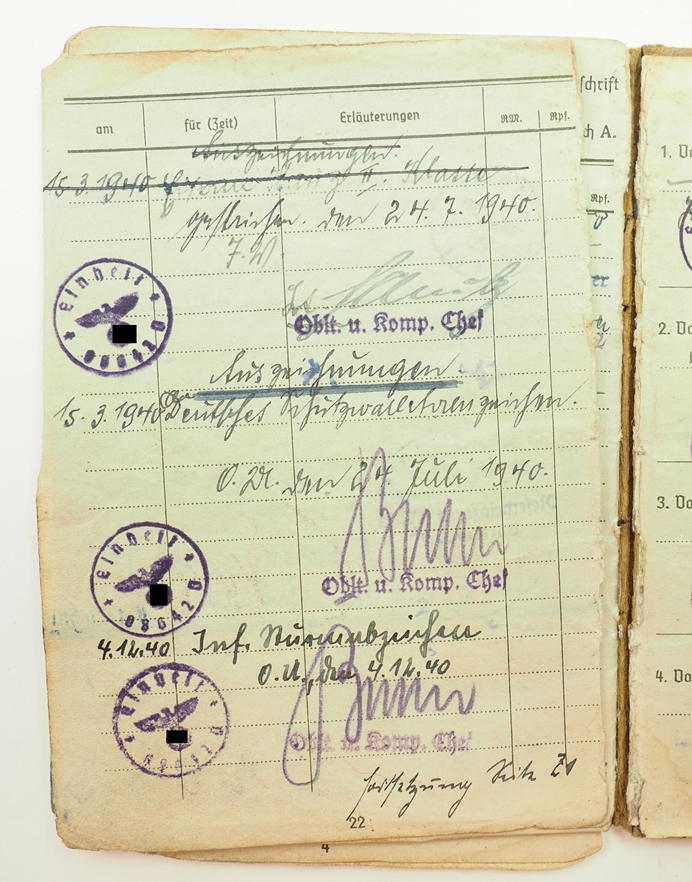 am für (Zeit) Erläuterungen RM. Rpf.
Auszeichnungen.
15.3.1940 II. Klasse
gestrichen. den 24.7.1940.
Einheit 08642
Oblt. u. Komp. Chef
Auszeichnungen.
15.3.1940 Deutsches Schutzwallehrenzeichen.
O.U. den 24. Juli 1940.
Einheit 08642
Oblt. u. Komp. Chef
4.12.40 Inf. Sturmabzeichen
O.U., den 4.12.40
Einheit
Oblt. u. Komp. Chef
Fortsetzung Seite
22
4
schrift
ch A.
Rpf.
1. Do
2. Do
3. Do
4. Do